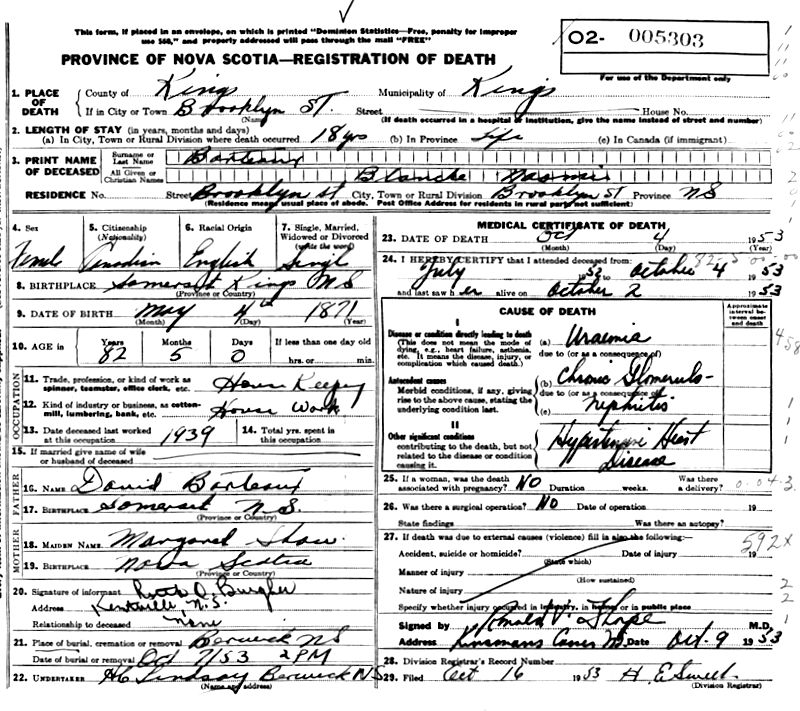 This form, if placed in an envelope, on which is printed "Dominion Statistics—Free, penalty for improper
use $60," and properly addressed will pass through the mail "FREE"
PROVINCE OF NOVA SCOTIA—REGISTRATION OF DEATH
02- 005303
For use of the Department only
1. PLACE OF DEATH
County of Kings Municipality of Kings
If in City or Town Brooklyn St. Street House No.
(Name) (If death occurred in a hospital or institution, give the name instead of street and number)
2. LENGTH OF STAY (in years, months and days)
(a) In City, Town or Rural Division where death occurred 18 yrs (b) In Province Life (c) In Canada (if immigrant)
3. PRINT NAME OF DECEASED
Surname or Last Name Borteaux
All Given or Christian Names Blanche Naomi
RESIDENCE No. Street Brooklyn St City, Town or Rural Division Brooklyn St Province NS
(Residence means usual place of abode. Post Office Address for residents in rural parts not sufficient)
4. Sex Female
5. Citizenship (Nationality) Canadian
6. Racial Origin English
7. Single, Married, Widowed or Divorced (write the word) Single
8. BIRTHPLACE Somerset Kings NS
(Province or Country)
9. DATE OF BIRTH May 4th 1871
(Month) (Day) (Year)
10. AGE in Years 82 Months 5 Days 0 If less than one day old hrs. or min.
OCCUPATION
11. Trade, profession, or kind of work as spinner, teamster, office clerk, etc. House Keeping
12. Kind of industry or business, as cotton-mill, lumbering, bank, etc. House Work
13. Date deceased last worked at this occupation 1939 14. Total yrs. spent in this occupation
15. If married give name of wife or husband of deceased
FATHER
16. NAME David Borteaux
17. BIRTHPLACE Somerset N.S.
(Province or Country)
MOTHER
18. MAIDEN NAME Margaret Shaw
19. BIRTHPLACE Nova Scotia
(Province or Country)
20. Signature of informant Burgher
Address Kentville N.S.
Relationship to deceased None
21. Place of burial, cremation or removal Berwick NS
Date of burial or removal Oct 7/53 2 PM
22. UNDERTAKER Lindsay Berwick NS
(Name and address)
MEDICAL CERTIFICATE OF DEATH
23. DATE OF DEATH Oct 4 1953
(Month) (Day) (Year)
24. I HEREBY CERTIFY that I attended deceased from:
July 1952 to October 4 1953
and last saw her alive on October 2 1953
CAUSE OF DEATH
Approximate interval between onset and death
I
Disease or condition directly leading to death
(This does not mean the mode of dying, e.g., heart failure, asthenia, etc. It means the disease, injury, or complication which caused death.)
(a) Uraemia
due to (or as a consequence of)
Antecedent causes
Morbid conditions, if any, giving rise to the above cause, stating the underlying condition last.
(b) Chronic Glomerulo-
due to (or as a consequence of)
(c) Nephritis
II
Other significant conditions
contributing to the death, but not related to the disease or condition causing it.
Hypertensive Heart
Disease
25. If a woman, was the death associated with pregnancy? NO Duration weeks. Was there a delivery?
26. Was there a surgical operation? NO Date of operation 19
State findings Was there an autopsy?
27. If death was due to external causes (violence) fill in also the following:—
Accident, suicide or homicide? Date of injury 19
(State which)
592X
Manner of injury
(How sustained)
Nature of injury
Specify whether injury occurred in industry, in home, or in public place
Signed by M.D.
Address Date Oct. 9 1953
28. Division Registrar's Record Number
29. Filed Oct 16 1953 H. E. Sweet
(Division Registrar)